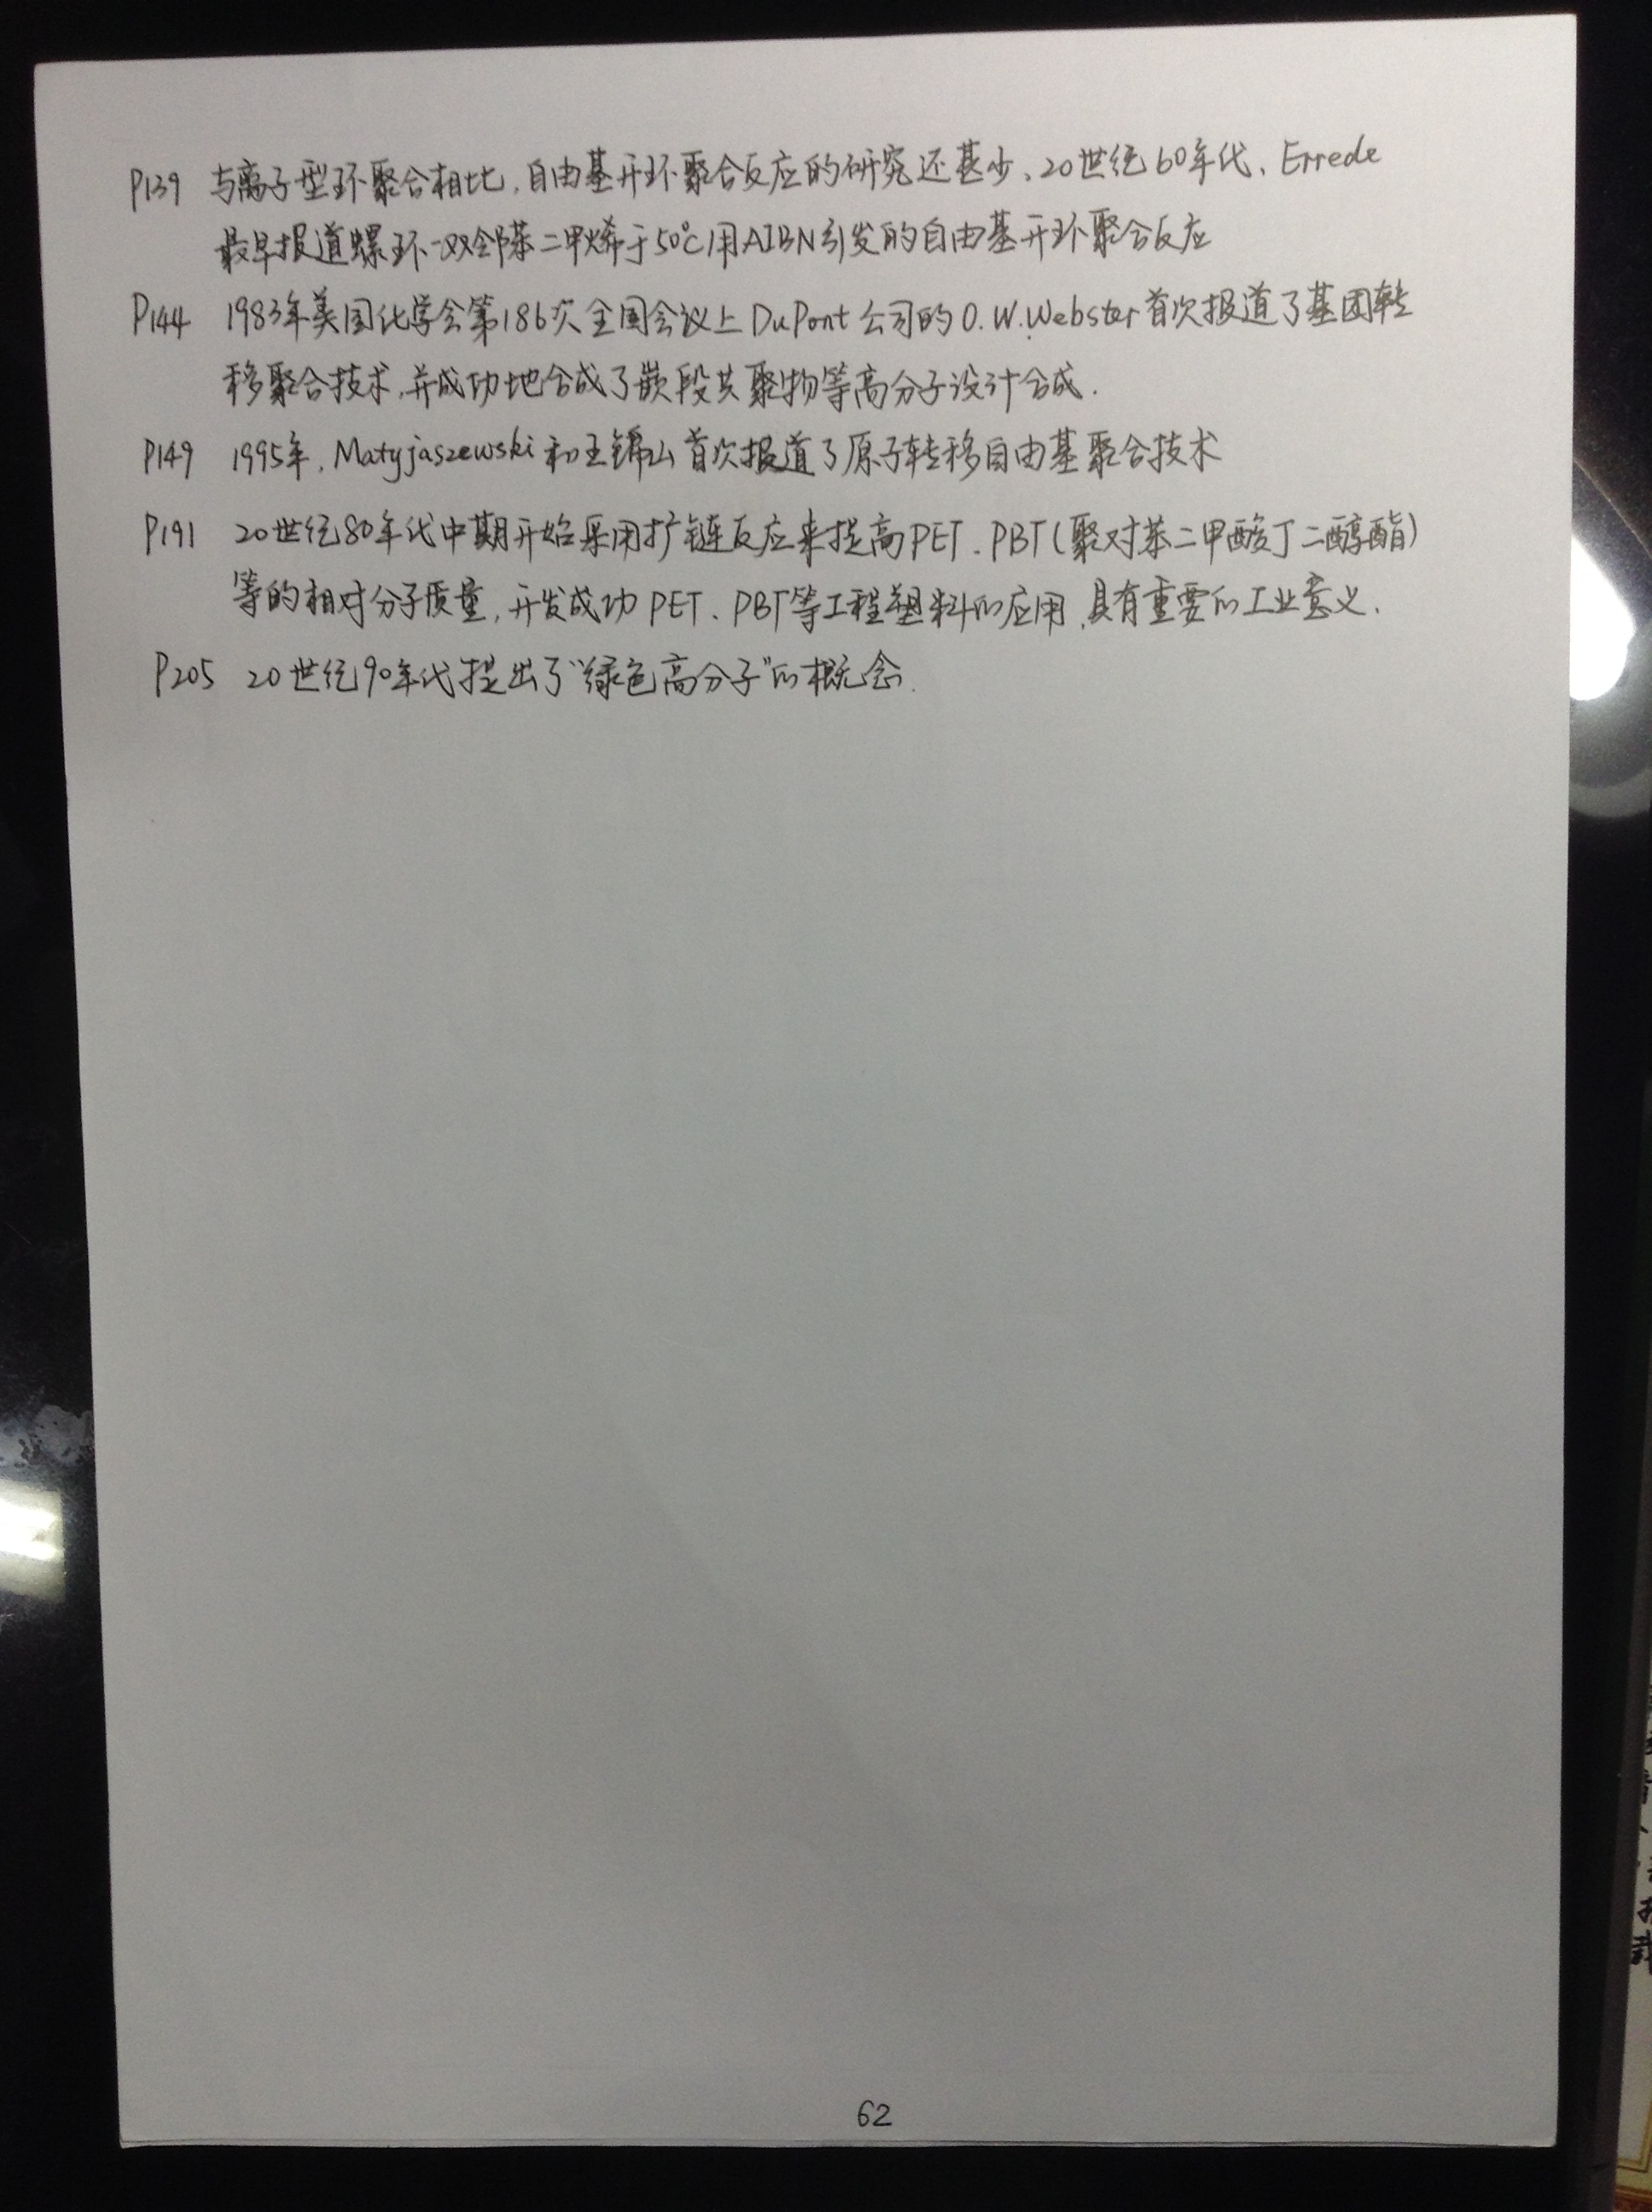 P139 与离子型环聚合相比,自由基开环聚合反应的研究还甚少、20世纪60年代、Errede
最早报道螺环-双邻苯二甲烯于50℃用AIBN引发的自由基开环聚合反应
P144 1983年美国化学会第186次全国会议上DuPont公司的O.W.Webster首次报道了基团转
移聚合技术,并成功地合成了嵌段共聚物等高分子设计合成.
P149 1995年,Matyjaszewski和王锦山首次报道了原子转移自由基聚合技术
P191 20世纪80年代中期开始采用扩链反应来提高PET、PBT(聚对苯二甲酸丁二醇酯)
等的相对分子质量,开发成功PET、PBT等工程塑料的应用,具有重要的工业意义.
P205 20世纪90年代提出了“绿色高分子”的概念.
62